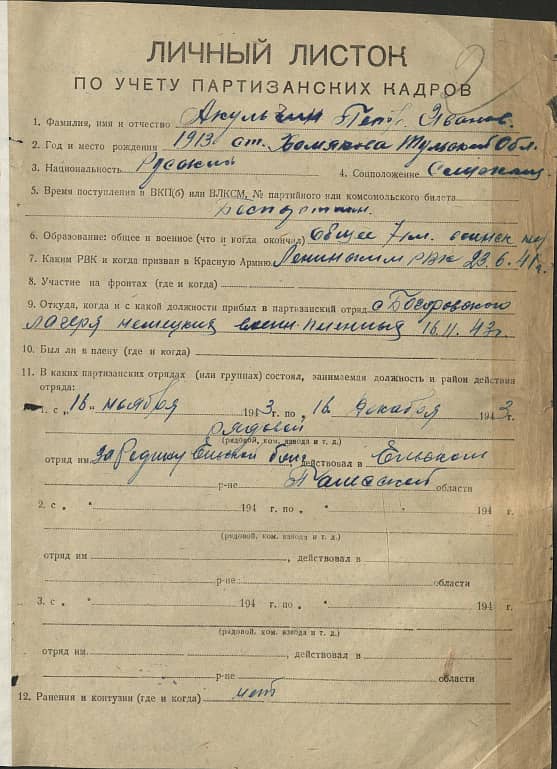 2
ЛИЧНЫЙ ЛИСТОК
ПО УЧЕТУ ПАРТИЗАНСКИХ КАДРОВ
1. Фамилия, имя и отчество Акульчин Петр Иванов.
2. Год и место рождения 1913 ст. Хомяково Тульской Обл.
3. Национальность Русский 4. Соцположение
5. Время поступления в ВКП(б) или ВЛКСМ, № партийного или комсомольского билета
Беспартийн.
6. Образование: общее и военное (что и когда окончил) общее 7 кл. воинск нет
7. Каким РВК и когда призван в Красную Армию Ленинским РВК 23.6.41 г.
8. Участие на фронтах (где и когда)
9. Откуда, когда и с какой должности прибыл в партизанский отряд с
лагеря немецких военно-пленных 16.11.43 г.
10. Был ли в плену (где и когда)
11. В каких партизанских отрядах (или группах) состоял, занимаемая должность и район действия
отряда:
1. с „16“ ноября 1943 г. по „16. декабря 1943 г.
рядовой
(рядовой, ком. взвода и т. д.)
отряд им. За Родину Ельской бриг, действовал в Ельском
р-не Полесской области
2. с „ “ 194 г. по „ “ 194 г.
(рядовой, ком. взвода и т. д.)
отряд им. , действовал в
р-не области
3. с „ “ 194 г. по „ “ 194 г.
(рядовой, ком. взвода и т. д.)
отряд им. , действовал в
р-не области
12. Ранения и контузии (где и когда) нет